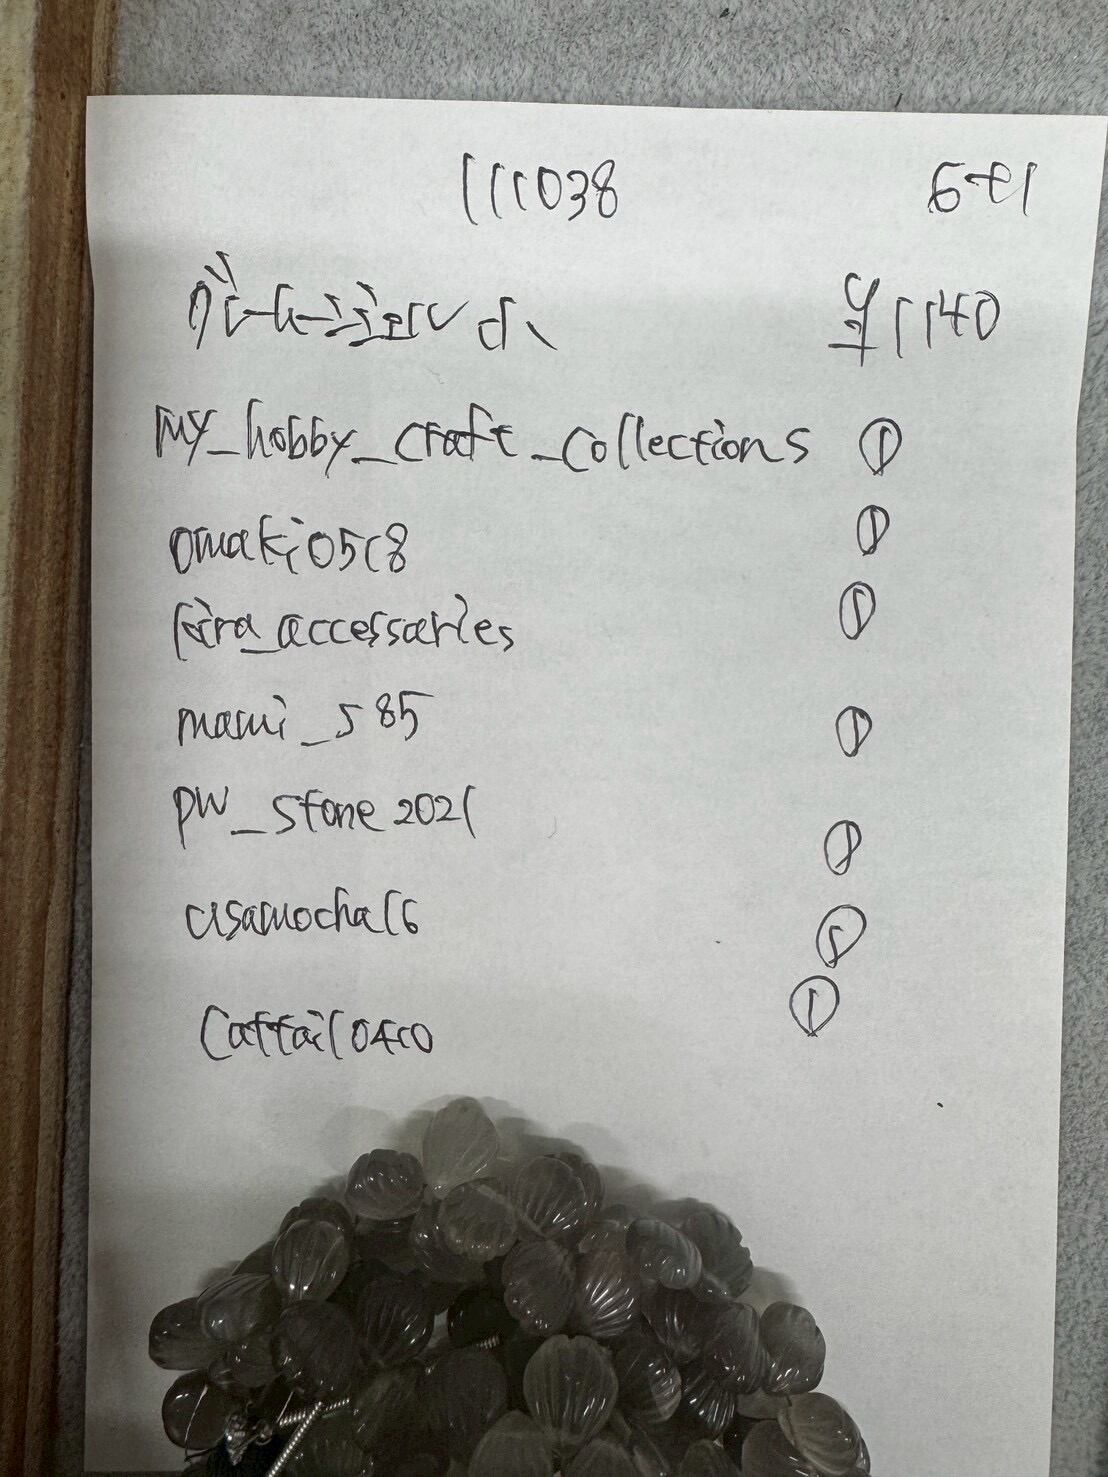 111038 6セ1
¥1140
my_hobby_craft_collections ①
omaki0518 ①
kira_accessaries ①
mami_s85 ①
pw_stone2021 ①
usamocha16 ①
Cattail0410 ①